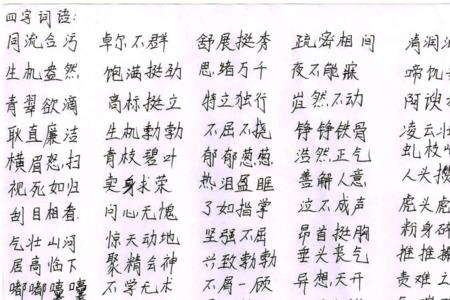 四字词语:
同流合污 卓尔不群 舒展挺秀 疏密相间 清润
生机盎然, 饱满挺劲 思绪万千 夜不能寐 啼饥
青翠欲滴 高标挺立 特立独行 岿然不动 阿谀
耿直廉洁 生机勃勃 不屈不挠 铮铮铁骨 凌云壮
横眉怒扫 青枝碧叶 郁郁葱葱, 浩然正气 虬枝
视死如归 卖身求荣 热泪盈眶 善解人意, 人头
刮目相看. 问心无愧 了如指掌 泣不成声 虎头虎
气壮山河 惊天动地 坚强不屈 昂首挺胸 粉身碎
居高临下 聚精会神 兴致勃勃 垂头丧气 推推
嘟嘟囔囔 不学无术 不屑一顾 异想天开 责难